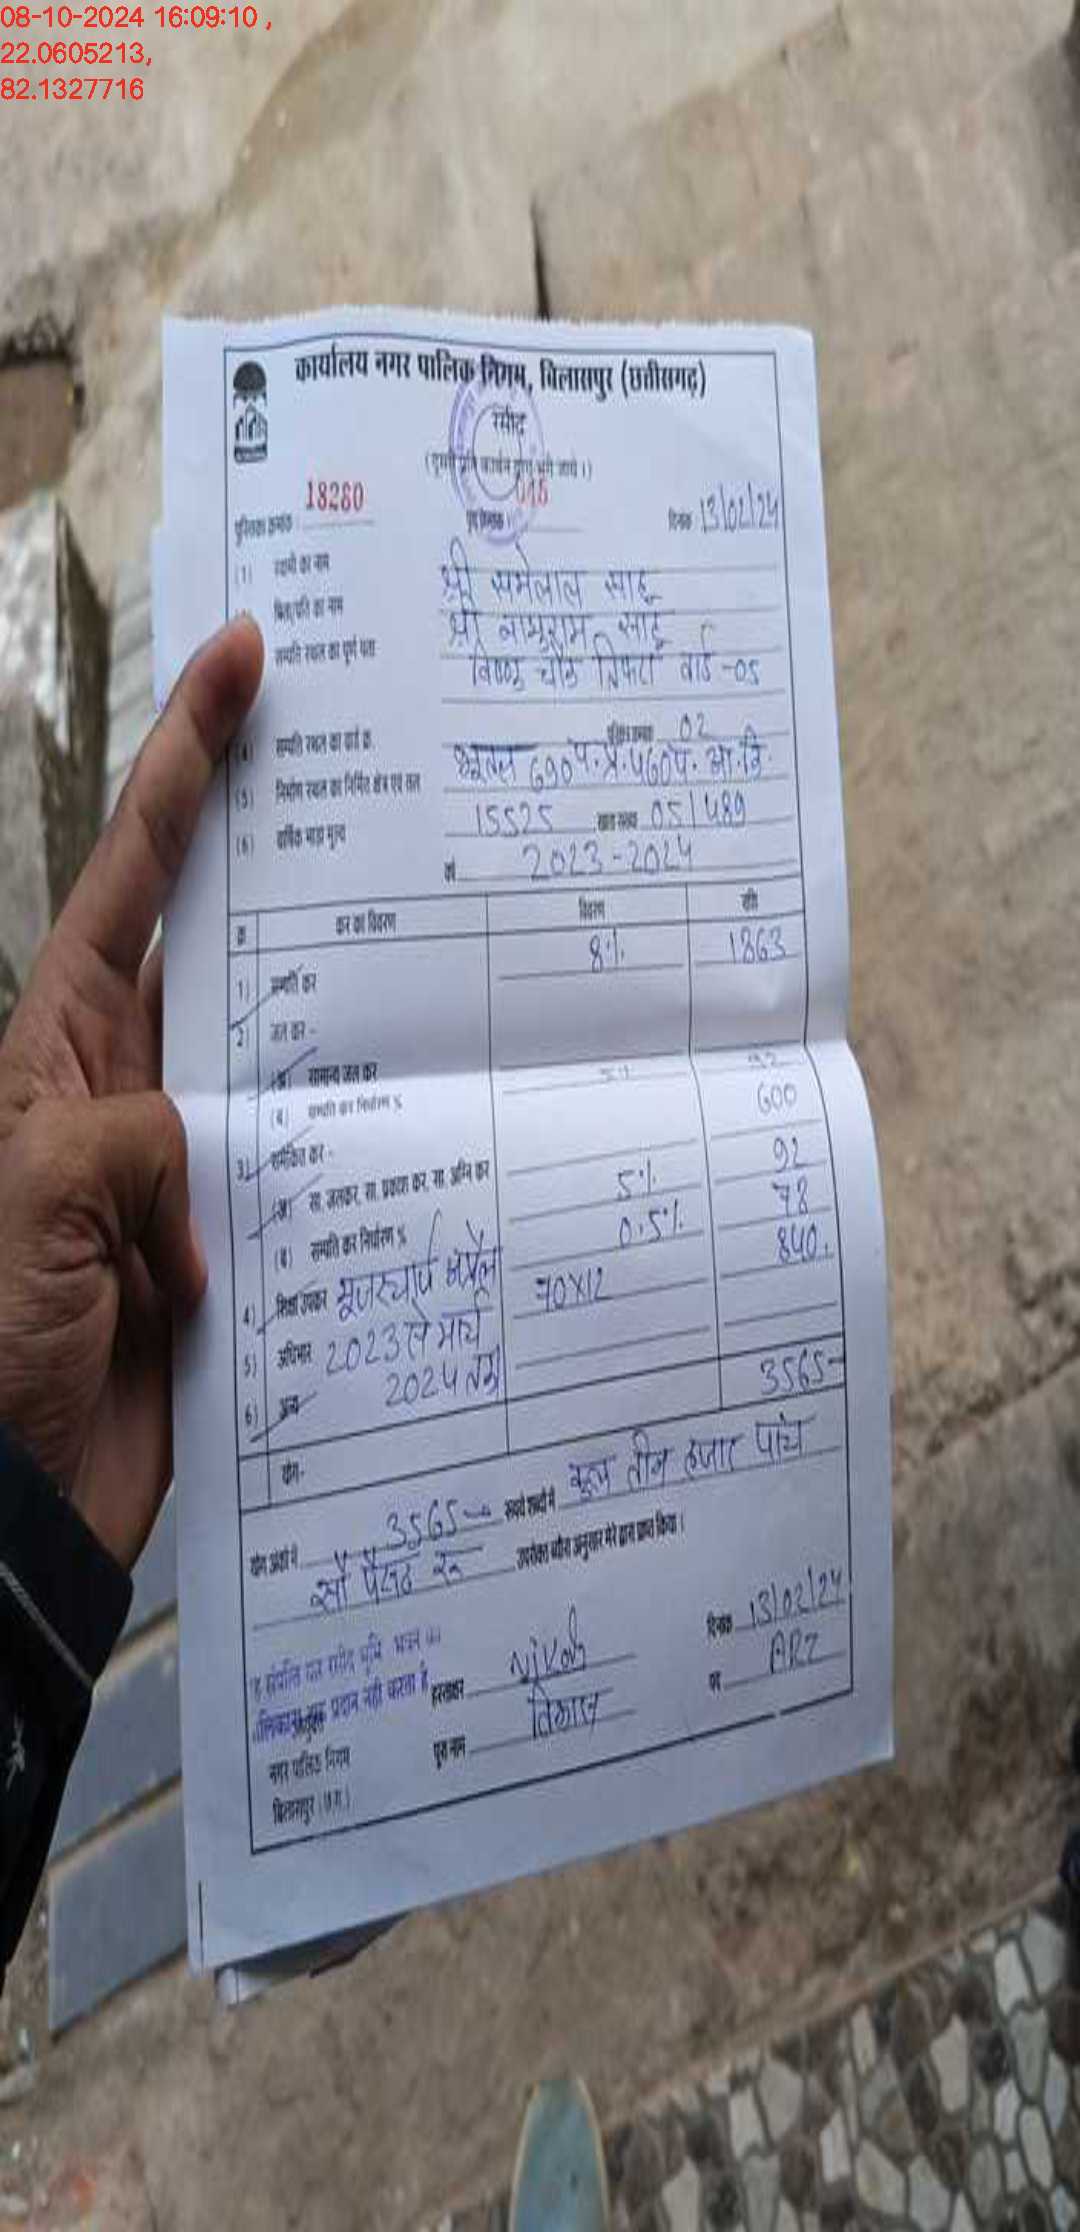 08-10-2024 16:09:10 ,
22.0605213,
82.1327716
कार्यालय नगर पालिक निगम, बिलासपुर (छत्तीसगढ़)
रसीद
पुस्तिका क्रमांक 18260 015 दिनांक 13/02/24
(1) स्वामी का नाम श्री समेलाल साहू
पिता/पति का नाम श्री साहू
सम्पत्ति स्थल का पूर्ण पता विष्णु चौक तिफरा वार्ड -05
(4) सम्पत्ति स्थल का वार्ड क्र. 02
(5) निर्माण स्थल का निर्मित क्षेत्र एवं तल भूतल 690 460
(6) वार्षिक भाड़ा मूल्य 15525 05/489
वर्ष 2023-2024
क्र कर का विवरण विवरण राशि
1) सम्पत्ति कर 8% 1863
2) जल कर -
(अ) सामान्य जल कर
(ब) सम्पत्ति कर निर्धारण %
3) समेकित कर - 600
(अ) सा. जलकर, सा. प्रकाश कर, सा. अग्नि कर 92
(ब) सम्पत्ति कर निर्धारण % 5% 78
4) शिक्षा उपकर यूजरचार्ज अप्रैल 0.5% 840.
5) अधिभार 2023 से मार्च 70X12
6) अन्य 2024 तक
योग- 3565-
योग अंकों में 3565 रुपये शब्दों में कुल तीन हजार पांच
सौ पैंसठ रु उपरोक्त ब्यौरा अनुसार मेरे द्वारा प्राप्त किया।
दिनांक 13/02/24
प्रदान नहीं करता है हस्ताक्षर पद
नगर पालिक निगम पूरा नाम
बिलासपुर (छ.ग.)